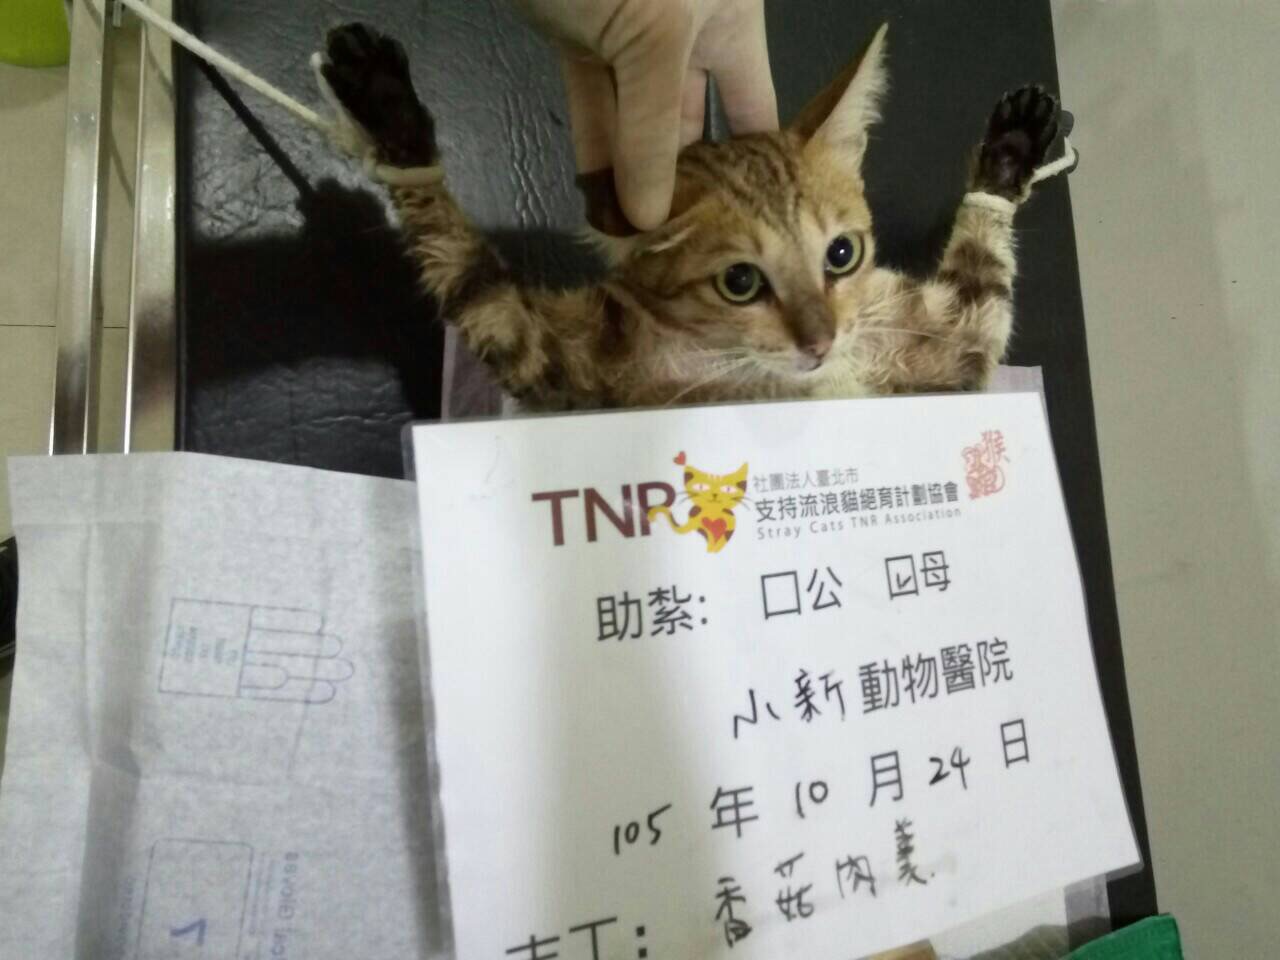 TNR
社團法人臺北市
支持流浪貓絕育計劃協會
Stray Cats TNR Association
助紮: □公 ☑母
小新動物醫院
105 年 10 月 24 日
志工: 香菇肉羹